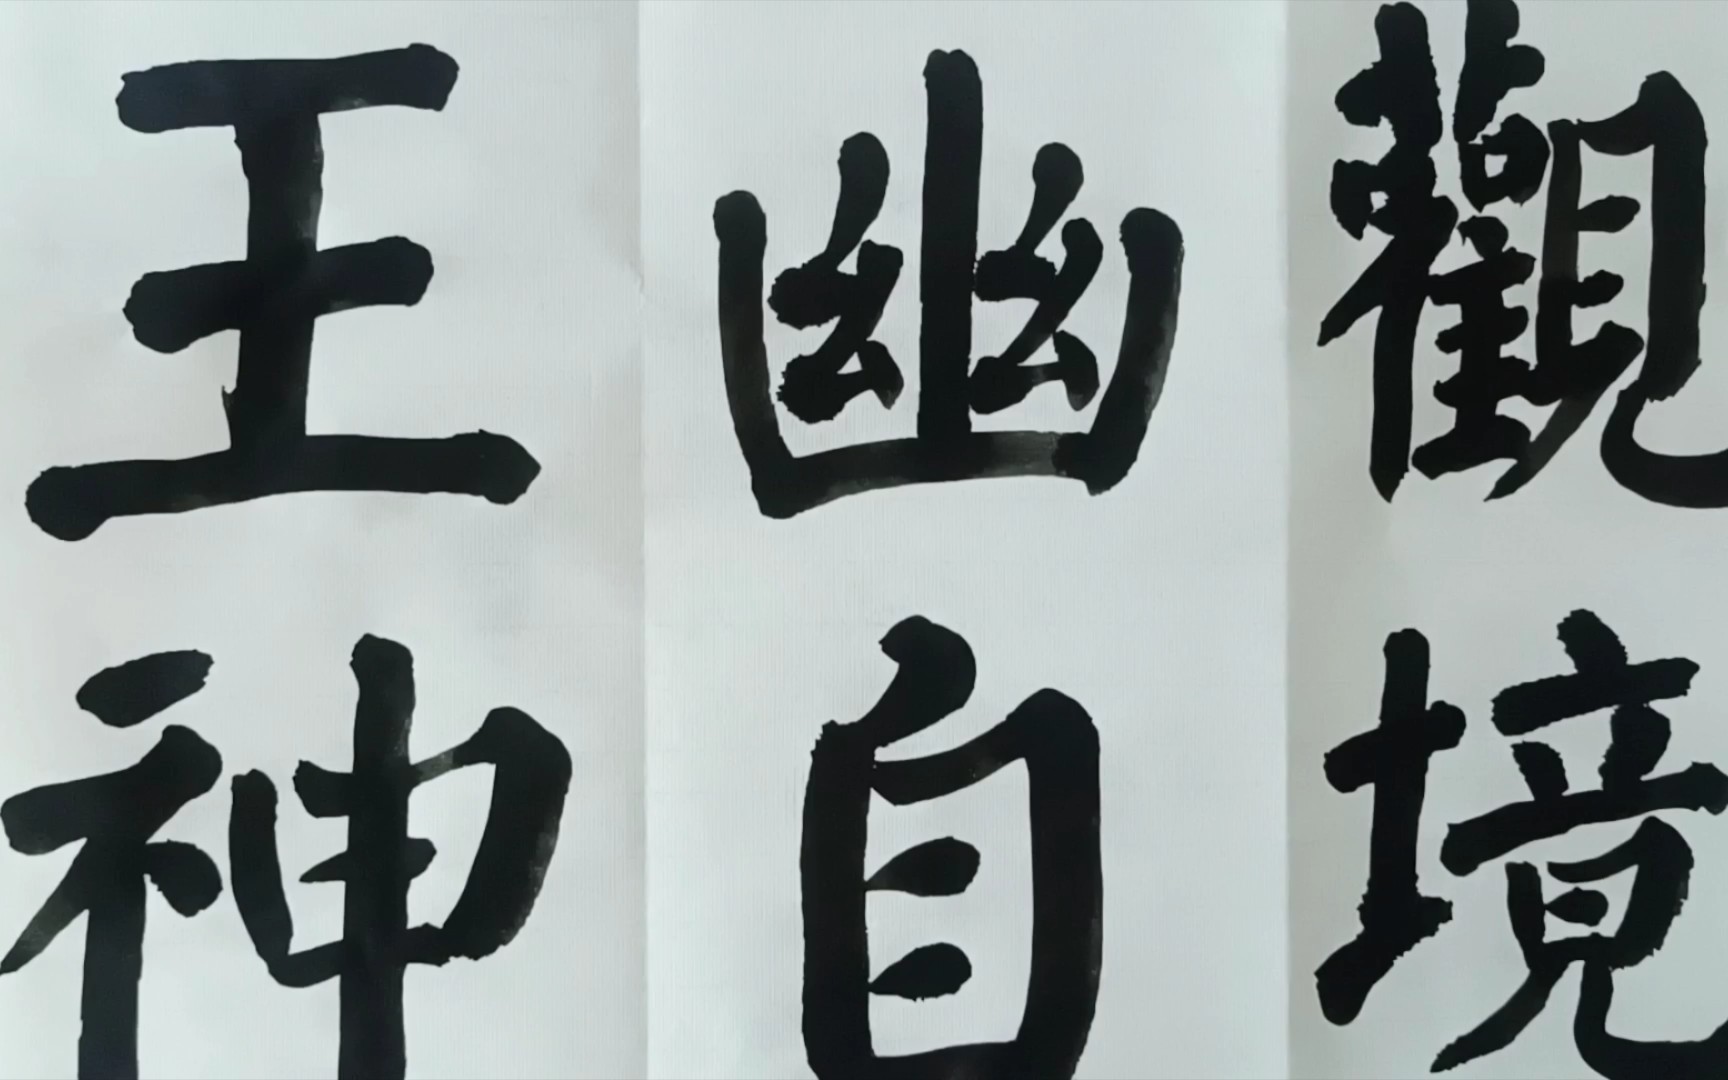 觀境
幽自
王神